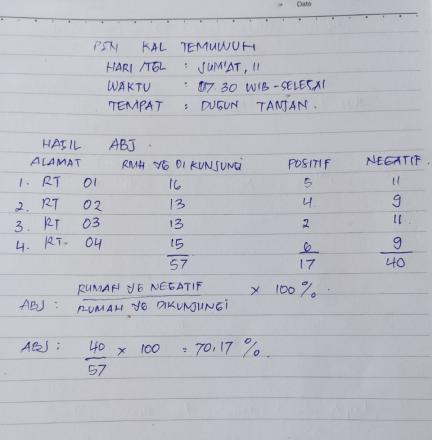 Date
PSN KAL TEMUWUH
HARI /TGL : JUM'AT, 11
WAKTU : 07.30 WIB - SELESAI
TEMPAT : DUSUN TANJAN.
HASIL ABJ.
ALAMAT RMH YG DI KUNJUNGI POSITIF NEGATIF
1. RT 01 16 5 11
2. RT 02 13 4 9
3. RT 03 13 2 11
4. RT. 04 15 6 9
57 17 40
ABJ : RUMAH YG NEGATIF × 100 %.
RUMAH YG DIKUNJUNGI
ABJ : 40 × 100 = 70,17 %.
57